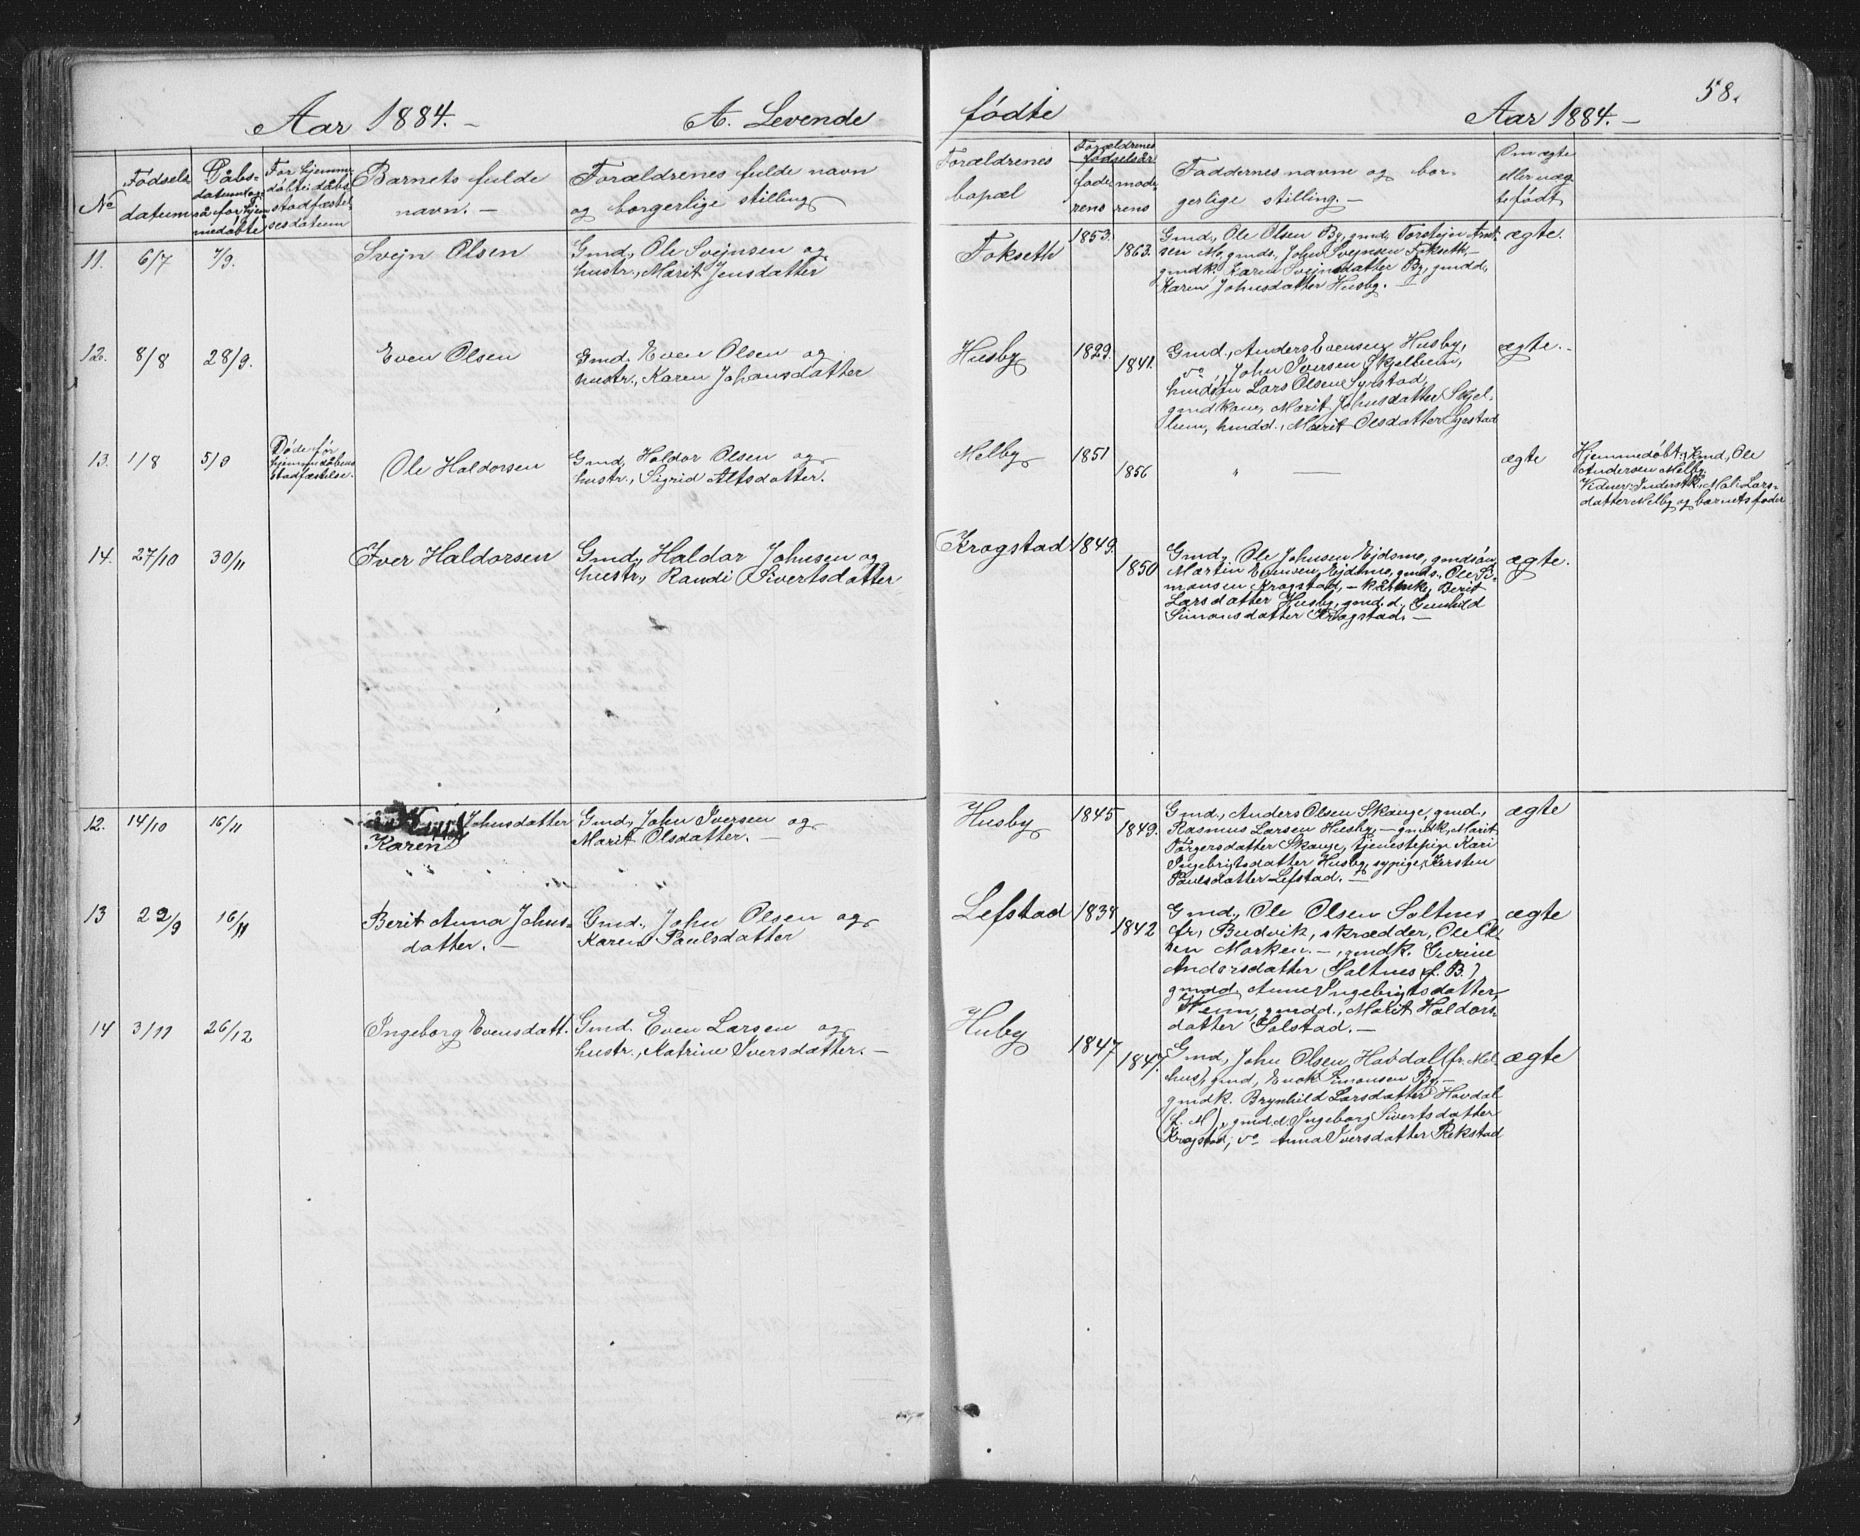 58.
Aar 1884. –
A. Levende
fødte
Aar 1884. –
No
Fødsels
datum
Dåbs-
datum også for hjem
medøbte
For hjemme
døbte: dåbs
stadfæstel
sesdatum
Barnets fulde
navn. –
Forældrenes fulde navn
og borgerlige stilling
Forældrenes
bopæl
Forældrenes
fødselsår
fade
rens
mode
rens
Faddernes navne og bor-
gerlige stilling. –
Om ægte
eller uæg
te født
11.
6/7
7/9.
Svejn Olsen
Gmd, Ole Svejnsen og
hustr., Marit Jensdatter
Fokseth
1853.
1863.
Gmd, Ole Olsen By, gmd. Torstejn
sen Mo, gmds. John Svejnsen Fokseth, –
gmdk. Karen Svejnsdatter By, gmdd,
Karen Johnsdatter Husby. –
ægte.
12.
8/8
28/9.
Even Olsen
Gmd. Even Olsen og
hustr., Karen Johansdatter
Husby
1829.
1841.
Gmd., Anders Evensen Husby,
do, John Iversen Skjelbein,
Lars Olsen Syrstad,
gmdkone, Marit Johnsdatter Skjel-
bein, Marit Olsdatter Syrstad
ægte. –
13.
1/8
5/9
Døde før
hjemmedåbens
stadfæstelse.
Ole Haldorsen
Gmd, Haldor Olsen og
hustr., Sigrid Altsdatter.
Melby
1851
1856
" —
ægte
Hjemmedøbt: gmd, Ole
Andersen Melby
Vidner: Inderstk. Mali Lars-
datter Melby og barnets fader
14.
27/10
30/11
Iver Haldorsen
Gmd, Haldor Johnsen og
hustr., Randi Sivertsdatter
Krogstad
1849.
1850
Gmd, Ole Johnsen Ejdsmo, gmdsøn
Martin Evensen Ejdsmo, gmds. Ole Si-
monsen Krogstad, – Berit
Larsdatter Husby, gmd.d, Gunhild
Simonsdatter Krogstad. –
ægte.
12.
14/10
16/11
Johnsdatter
Karen
Gmd, John Iversen og
Marit Olsdatter. –
Husby
1845
1849.
Gmd, Anders Olsen Skauge, gmd.,
Rasmus Larsen Husby, – gmdk, Marit
Torgersdatter Skauge, tjenestepige Kari
Ingebrigtsdatter Husby, sypige, Kersten
Paulsdatter Lefstad. –
ægte
13
22/9
16/11
Berit Anna Johns-
datter. –
Gmd., John Olsen og
Karen Paulsdatter
Lefstad
1834
1842
Gmd., Ole Olsen Saltnes
fr. Budvik, skrædder, Ole
sen Morken. –, gmdk. Gurine
Andersdatter Saltnes (f. B.)
gmdd, Anne Ingebrigtsdatter
gmdd., Marit Haldors
datter Solstad. –
ægte
14
3/11
26/12
Ingeborg Evensdatt.
Gmd. Even Larsen og
hustr., Katrine Iversdatter. –
Huby
1847
1847.
Gmd, John Olsen Havdal (fr. Mel-
hus), gmd, Enok Simonsen By, –
gmdk. Brynhild Larsdatter Havdal
(f. M), gmd.d. Ingeborg Sivertsdatter
Krogstad, do Anna Iversdatter Rekstad
ægte